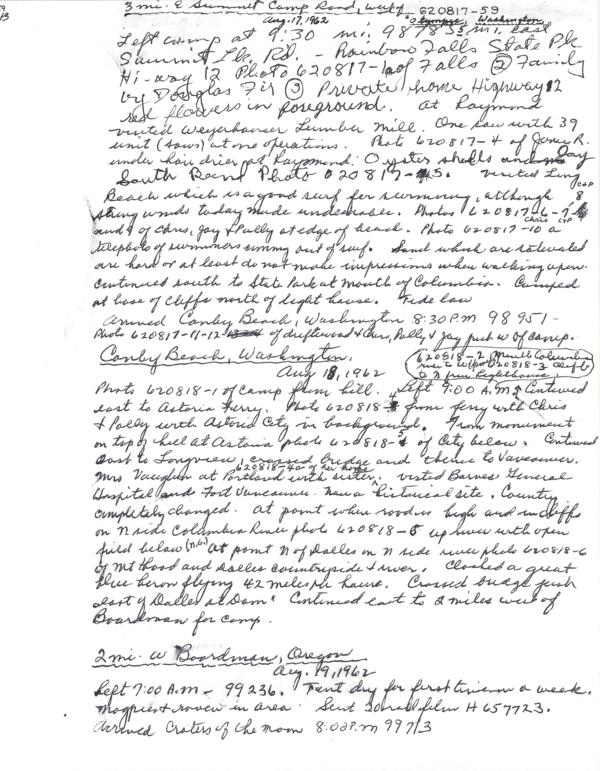 3 mi. E Summit Camp Road, west of 620817-59
Aug. 17, 1962 Olympia, Washington
Left camp at 9:30 mi. 98783 5 mi. east
Summit Lk. Rd. - Rainbow Falls State Pk
Hi-way 12 Photo 620817-1 of Falls (2) Family
by Douglas Fir (3) Private home Highway 12
red flowers in foreground. At Raymond
visited Weyerhauser Lumber Mill. One saw with 39
unit (saws) at one operation. Photo 620817-4 of Jones R.
under hair drier at Raymond. Oyster shells and Jay
South Bend Photo 620817-5. visited Long
Beach which is a good surf for swimming, although
strong winds today made undesirable. Photos 620817-6-7
and 9 of Chris, Jay & Polly at edge of beach. Photo 620817-10 a
telephoto of swimmers coming out of surf. Sand which are saturated
are hard or at least do not make impressions when walking upon.
Continued south to State Park at mouth of Columbia. Camped
at base of cliffs north of light house. Tide low
Arrived Canby Beach, Washington 8:30 P.M 98951-
Photo 620817-11-12 of driftwood & Chris, Polly & Jay just W of camp.
Canby Beach, Washington. 620818-2 mouth Columbia
river to W 620818-3 cliff to
Aug 18, 1962 lighthouse
Photo 620818-1 of camp from hill. Left 9:00 A.M. Continued
east to Astoria Ferry. Photo 620818- from ferry with Chris
& Polly with Astoria City in background. From monument
on top of hill at Astoria photo 620818-5 of City below. Continued
east to Longview, crossed bridge and thence to Vancouver.
620818-4a of her home
Mrs Vaughn at Portland with sister. visited Barnes General
Hospital and Fort Vancouver. Now a historical site. Country
completely changed. At point where road is high and in cliffs
on N side Columbia River photo 620818-5 up river with open
field below. At point N of Dalles on N side river photo 620818-6
of Mt Hood and Dalles countryside & river. Clocked a great
blue heron flying 42 miles per hour. Crossed bridge just
east of Dalles at Dam. Continued east to 2 miles west of
Boardman for camp.
2 mi. W Boardman, Oregon
Aug. 19, 1962
Left 7:00 A.M - 99236. Tent dry for first time in a week.
Magpies & raven in area. Sent 20 roll film H 657723.
Arrived Craters of the Moon 8:00 P.M 99713